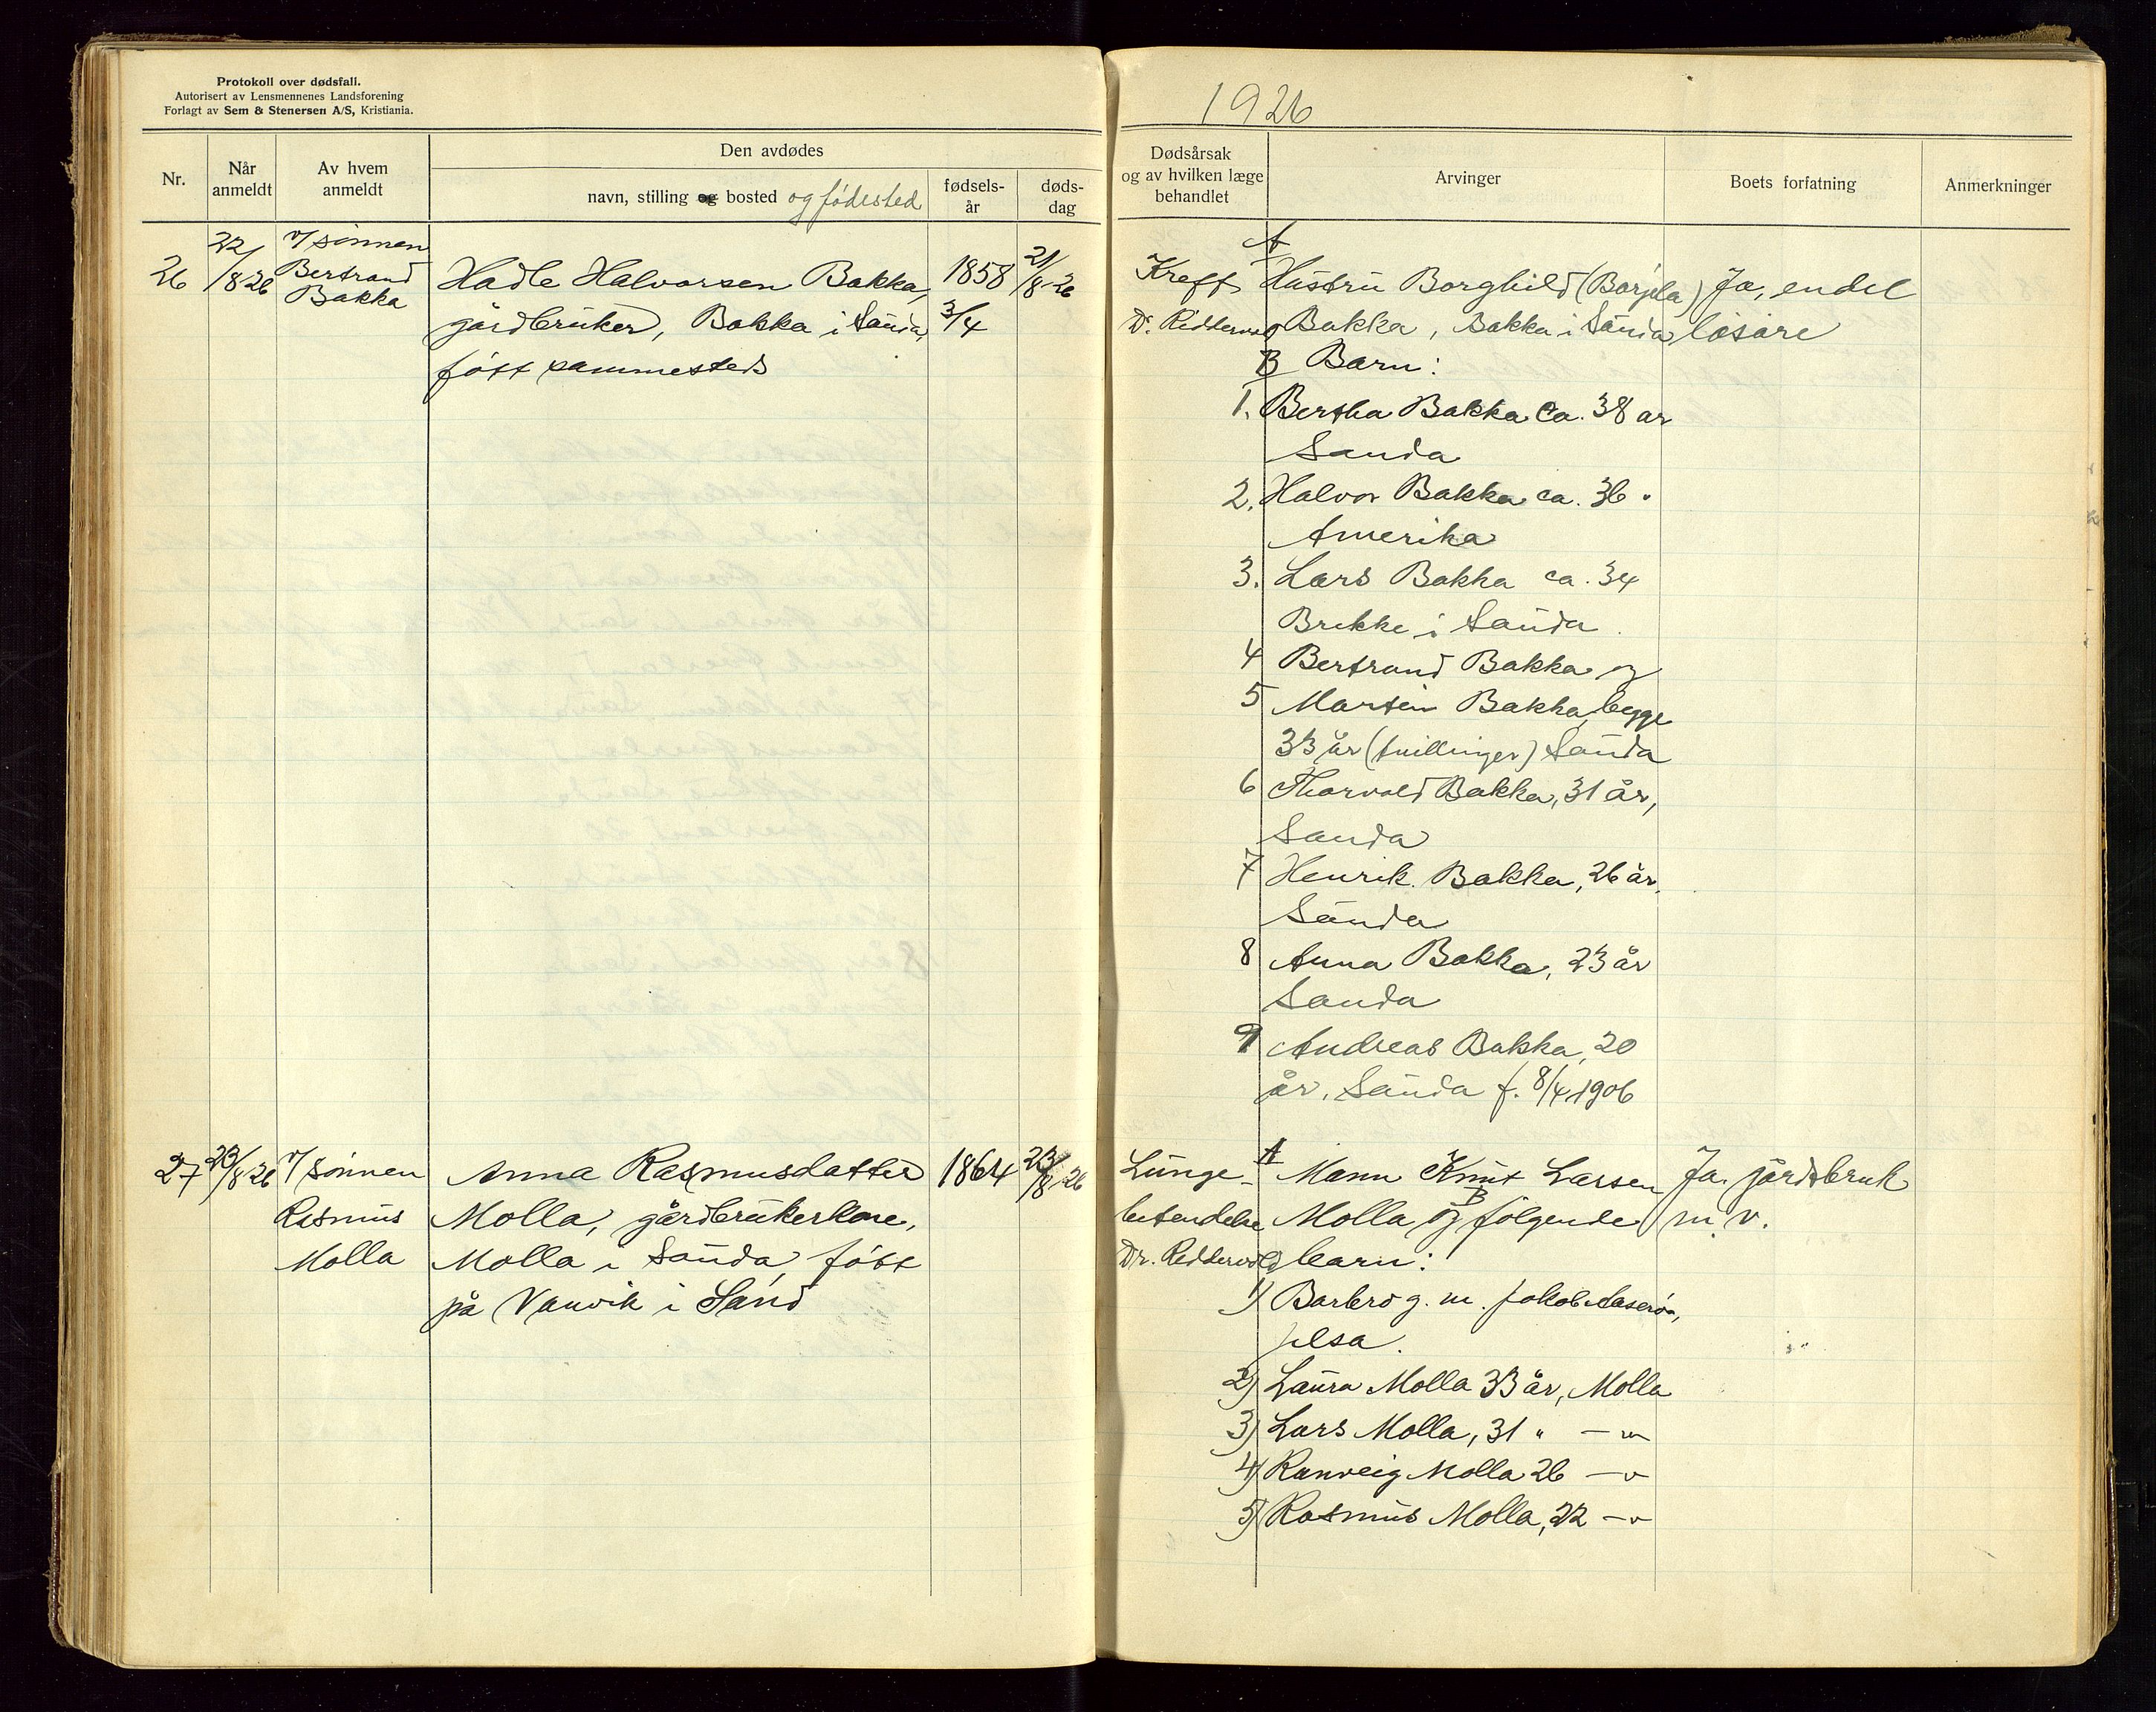 Protokoll over dødsfall.
Autorisert av Lensmennenes Landsforening
Forlagt av Sem & Stenersen A/S, Kristiania.
1926
Nr.
Når anmeldt
Av hvem anmeldt
Den avdødes
navn, stilling og bosted og fødested
fødsels-år
døds-dag
Dødsårsak
og av hvilken læge
behandlet
Arvinger
Boets forfatning
Anmerkninger
26
22/8 26
v/ sønnen
Bertrand
Bakka
Hadle Halvorsen Bakka,
gårdbruker, Bakka i Sauda,
født sammesteds
1858
3/4
21/8-26
Kreft
D. Reddervog
A
Hustru Borghild (Børjela)
Bakka, Bakka i Sauda
Ja, endel
løsøre
B Barn:
1. Bertha Bakka Ca. 38 år
Sauda
2. Halvor Bakka ca. 36 "
Amerika
3. Lars Bakka ca. 34
Brekke i Sauda
4 Bertrand Bakka og
5 Martin Bakka, begge
33 år (tvillinger) Sauda
6 Thorvald Bakka, 31 år,
Sauda
7 Henrik Bakka, 26 år,
Sauda
8 Anna Bakka, 23 år
Sauda
9 Andreas Bakka, 20
år, Sauda f. 8/4 1906
27
23/8 26
v/ sønnen
Rasmus
Molla
Anna Rasmusdatter
Molla, gårdbrukerkone,
Molla i Sauda, født
på Vanvik i Sand
1864
23/8-26
Lunge-
betendelse
Dr. Reddervold
A
Mann Knut Larsen
Molla og B følgende
barn:
Ja. jordbruk
m. v.
1) Barbro g. m. Jakob
Jelsa.
2) Laura Molla 33 år, Molla
3) Lars Molla, 31 " — " —
4) Ranveig Molla 26 — " —
5) Rasmus Molla, 22 — " —